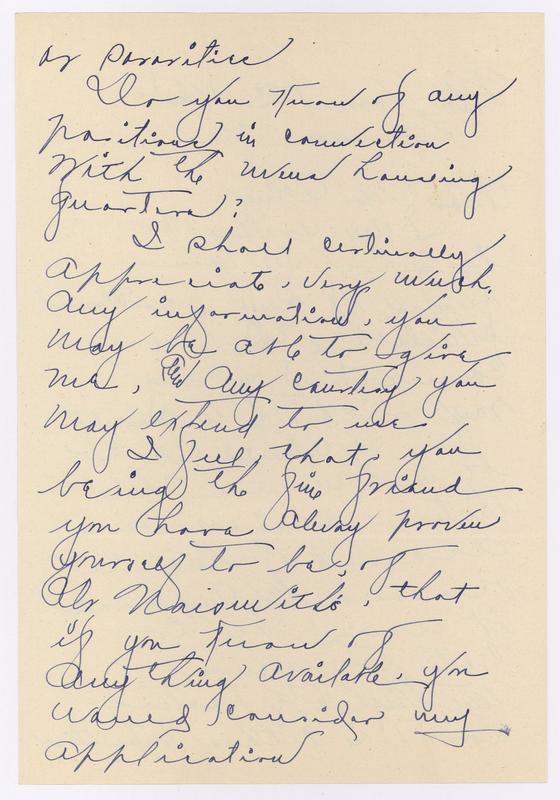 or sororities
Do you know of any
positions in connection
with the mens housing
quarters?
I shall certinally
appreciate, very much,
any information, you
may be able to give
me, and any courtesy you
may extend to me
I feel, that, you
being the fine friend
you have alway proven
yourself to be, of
Dr Naismith's, that
if you know of
any thing available, you
would consider my
application